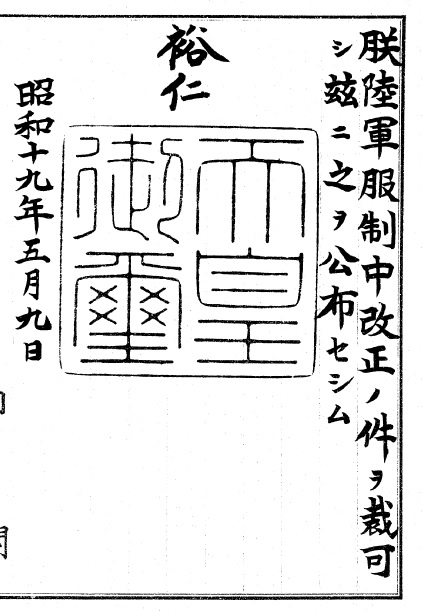 朕陸軍服制中改正ノ件ヲ裁可
シ茲ニ之ヲ公布セシム
裕仁
天皇
御璽
昭和十九年五月九日